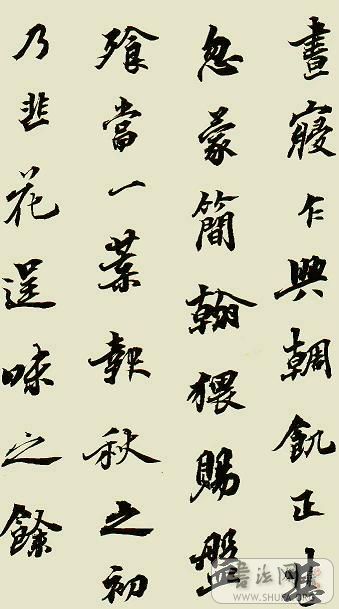 晝寢乍興輖飢正甚
忽蒙簡翰猥賜盤
飱當一葉報秋之初
乃韭花逞味之餘
WWW.SHUFA.ORG